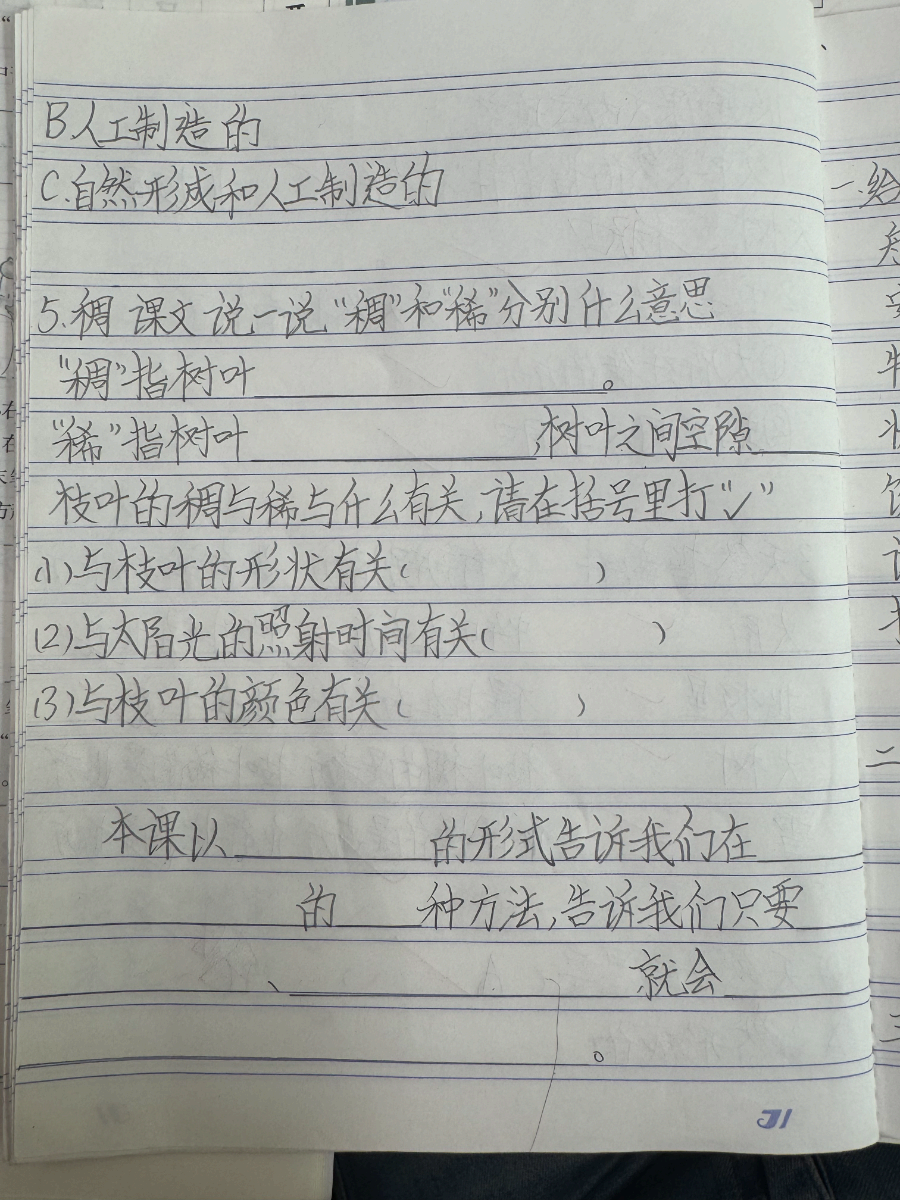 B.人工制造的
C.自然形成和人工制造的
5.稠 课文 说一说"稠"和"稀"分别什么意思
"稠"指树叶____________。
"稀"指树叶____________,树叶之间空隙____
枝叶的稠与稀与什么有关,请在括号里打"✓"
(1)与枝叶的形状有关( )
(2)与太阳光的照射时间有关( )
(3)与枝叶的颜色有关( )
本课以________的形式告诉我们在____
________的____种方法,告诉我们只要____
________、____________就会____
____________。
31
一.给
二
三